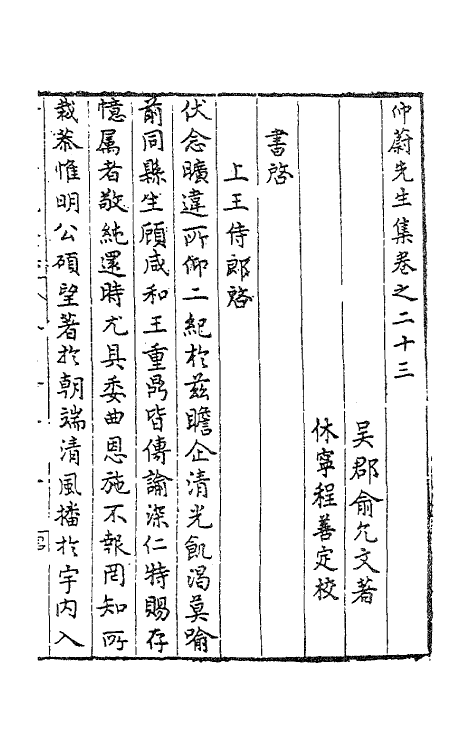 仲蔚先生集卷之二十三
吴郡俞允文著
休寧程善定校
書啓
上王侍郎啓
伏念曠違所仰二紀於兹瞻企清光飢渴莫踰
前同縣生顧咸和王重鼎皆傳諭深仁特賜存
憶属者敬純還時尤具委曲恩施不報罔知所
裁恭惟明公碩望著於朝端清風播於宇内入